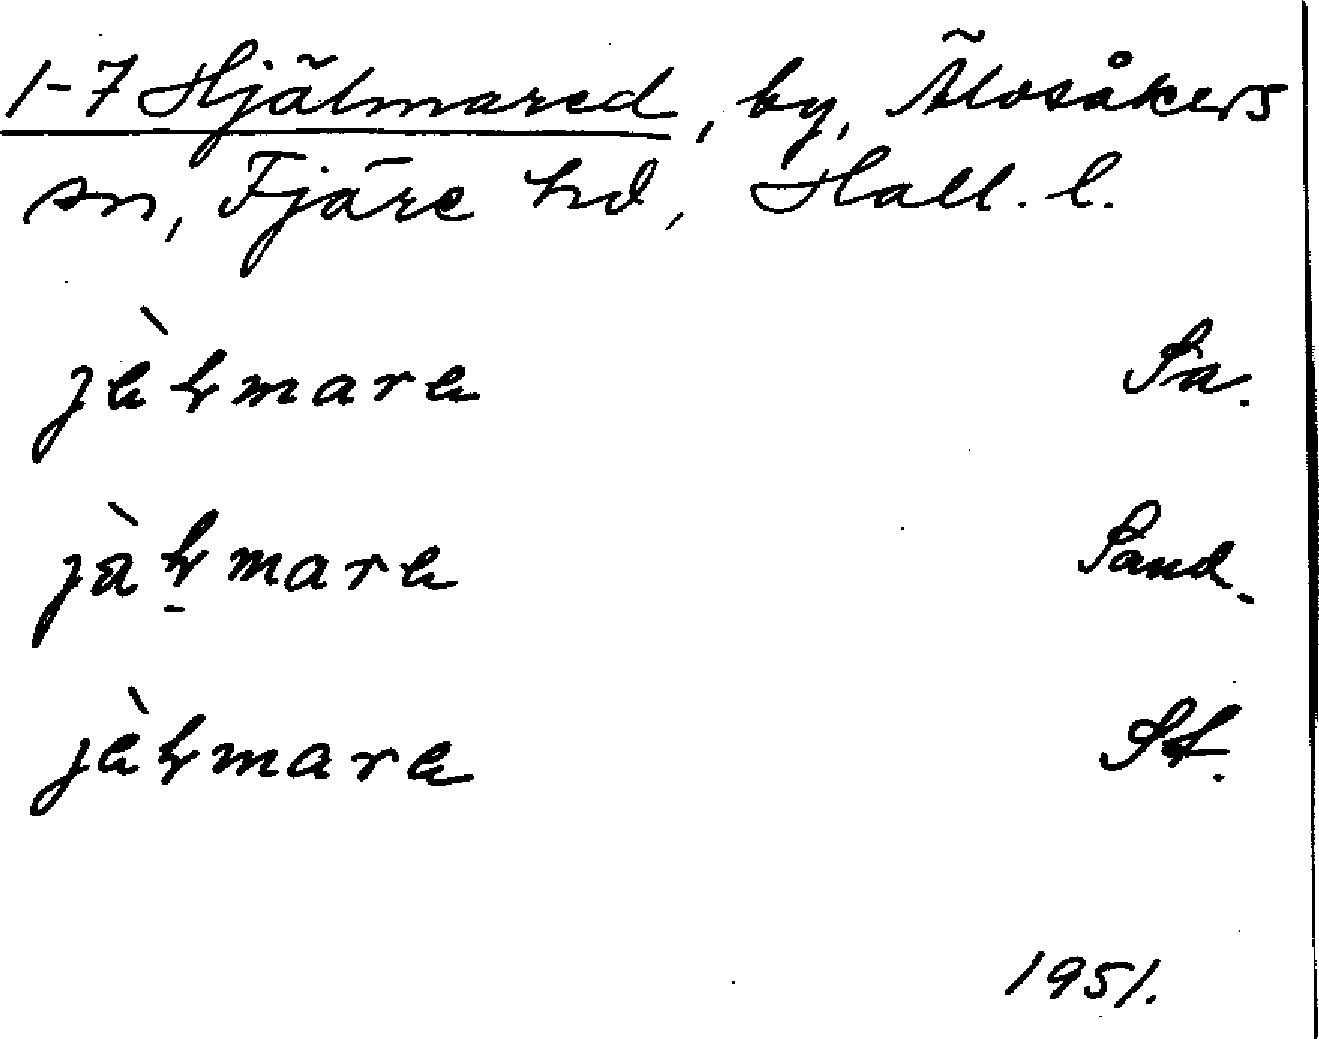 1-7 Hjälmared, by, Älvsåkers
sn, Fjäre hd, Hall. l.
jàɫmara Sa.
jàɫ̠mara Sand.
jàɫmara St.
1951.